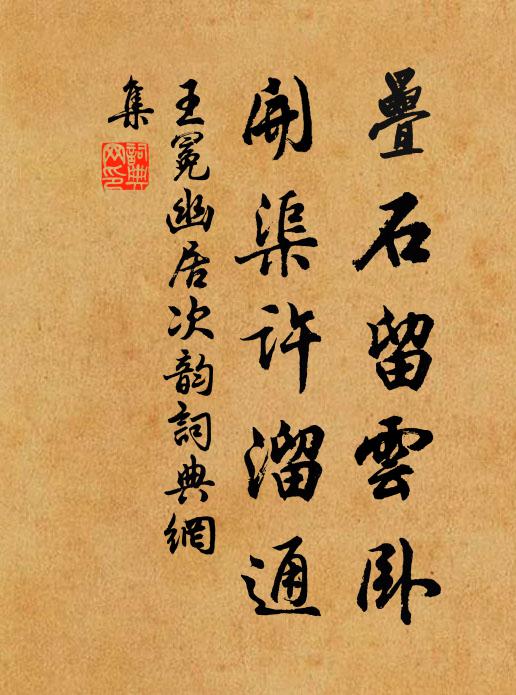 疊石留雲臥
開渠許溜通
王冕幽居次韵詞典網
集
詞典网印